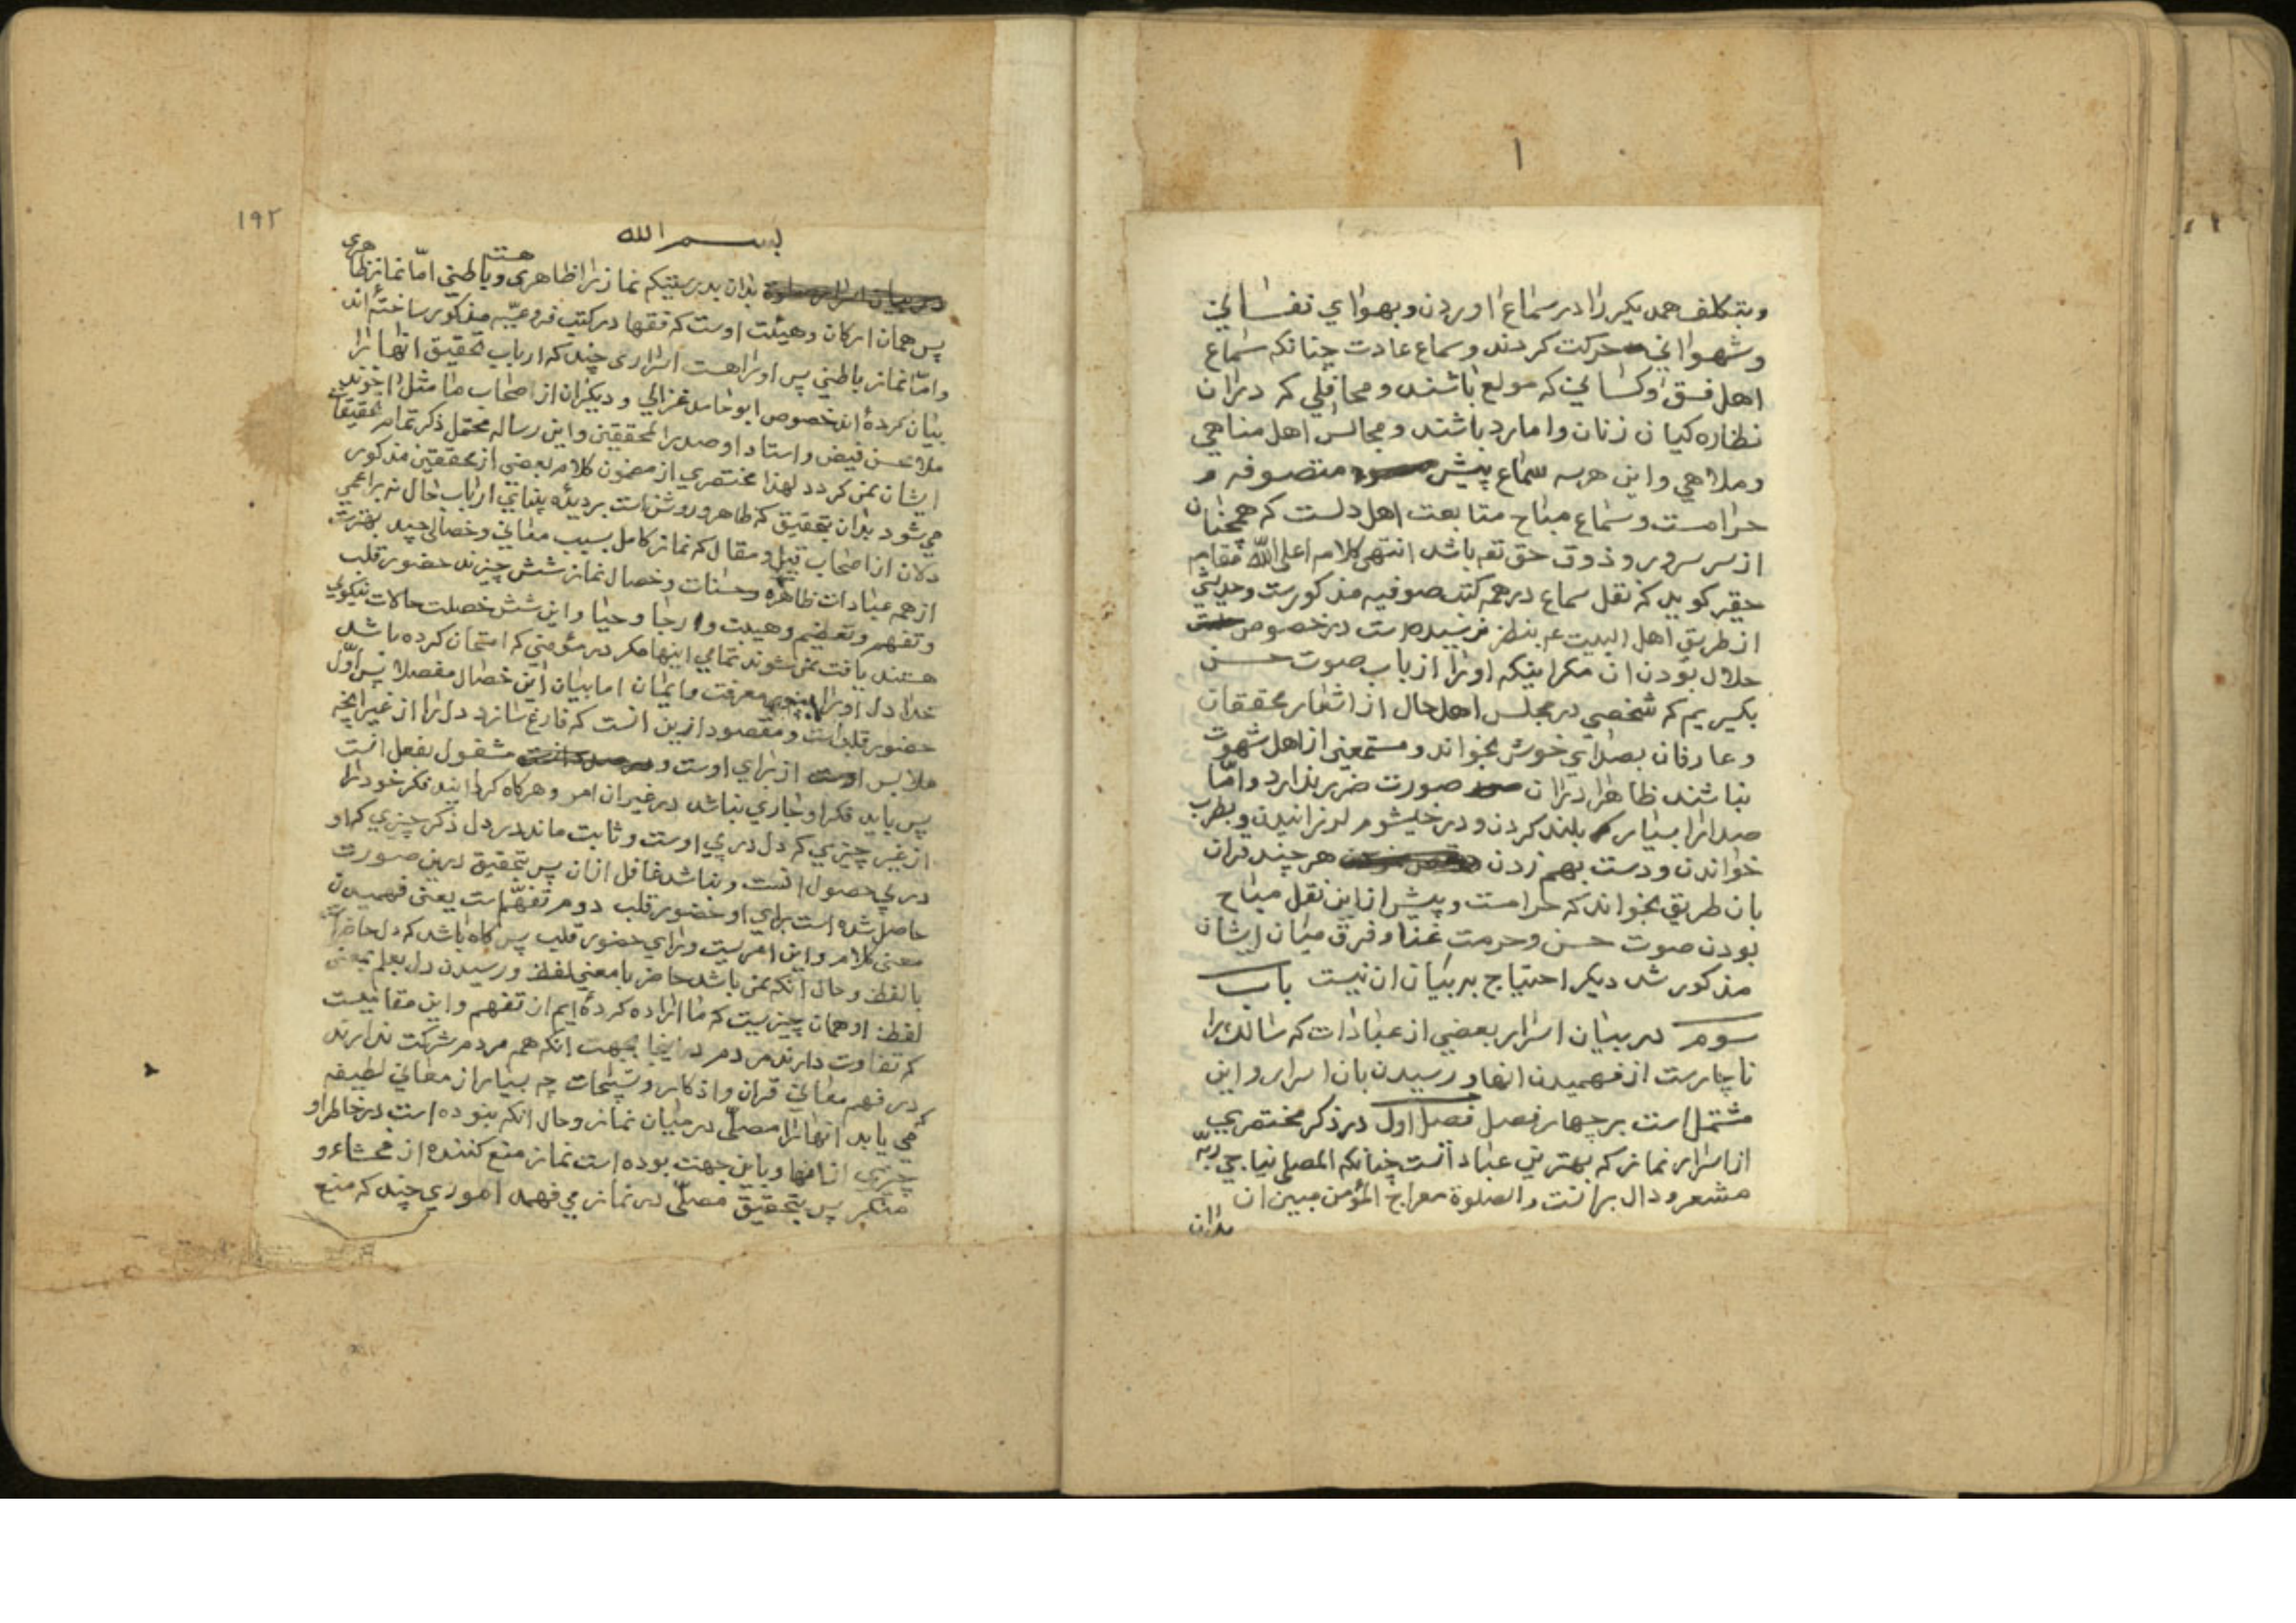 ۱
وبتکلف همدیکر را در سماع اوردن و بهوای نفسانی
وشهوانی حرکت کردند وسماع عادت چنانکه سماع
اهل فسق وکسانی که مولع باشند ومحافلی که در ان
نظاره کیان زنان وامارد باشند ومجالس اهل مناهی
وملاهی واین هر سه سماع پیش متصوفه
حرامست وسماع مباح متابعت اهل دلست که همچنان
از سر سرور وذوق حق تعه باشد انتهی کلامه اعلی الله مقامه
حقیر کوید که نقل سماع در همه کتب صوفیه مذکورست وحدیثی
از طریق اهل البیت عم بنظر نرسیده است در خصوص
حلال بودن ان مکر اینکه اورا از باب صوت حسن
بکیریم که شخصی در مجلس اهل حال از اشعار محققان
وعارفان بصدای خوش بخواند ومستمعین از اهل شهوت
نباشند ظاهرا در ان صورت ضرر ندارد وامّا
صدا را بسیار بلند کردن ودر خیشوم لرزانیدن وبطرب
خواندن ودست بهم زدن هر چند قران
بان طریق بخواند که حرامست وپیش ازاین نقل مباح
بودن صوت حسن وحرمت غنا وفرق میان ایشان
مذکور شد دیکر احتیاج بر بیان ان نیست باب
سوم در بیان اسرار بعضی از عبادات که سالک را
ناچارست از فهمیدن انها ورسیدن بان اسرار واین
مشتمل است بر چهار فصل فصل اول در ذکر مختصری
از اسرار نماز که بهترین عبادانست چنانکه المصلی یناجی ربّه
مشعر ودال بر انست والصلوة معراج المؤمن مبین ان
بدان
۱۹۲
بسم الله
بدان بدرستیکه نماز را ظاهری وباطنی هست امّا نماز ظاهری
پس همان ارکان وهیئت اوست که فقها در کتب فروعیّه مذکور ساخته‌اند
وامّا نماز باطنی پس اورا هست اسراری چند که ارباب تحقیق انها را
بیان کرده‌اند خصوص ابو حامد غزالی ودیکران از اصحاب ما مثل اخوند
ملا محسن فیض واستاد او صدر المحققین واین رساله محتمل ذکر تمام تحقیقات
ایشان نمی کردد لهذا مختصری از مضمون کلام بعضی از محققین مذکور
می شود بدان بتحقیق که ظاهر وروشن است بر دیده بینای ارباب حال نه بر اعمی
دلان از اصحاب قیل ومقال که نماز کامل بسبب معانی وخصالی چند بهترست
از همه عبادات ظاهره وحسنات وخصال نماز شش چیزند حضور قلب
وتفهم وتعظیم وهیبت ورجا وحیا واین شش خصلت حالات نیکوی
هستند یافت نمی شوند تمامی اینها مکر در مؤمنی که امتحان کرده باشد
خدا دل اورا معرفت وایمان اما بیان این خصال مفصلا پس اوّل
حضور قلب است ومقصود ازین انست که فارغ سازد دل را از غیر انچه
ملابس اوست از برای اوست و مشغول بفعل انست
پس باید فکر او جاری نباشد در غیر ان امر وهر کاه کردانید فکر خود را
از غیر چیزی که دل در پی اوست وثابت ماند در دل ذکر چیزی که او
در پی حصول انست ونباشد غافل از ان پس بتحقیق درین صورت
حاصل شده است برای او حضور قلب دوم تفهّم است یعنی فهمیدن
معنی کلام واین امریست ورای حضور قلب پس کاه باشد که دل حاضر است
با لفظ وحال انکه نمی باشد حاضر با معنی لفظ ورسیدن دل بعلم بمعنی
لفظ او همان چیزیست که ما اراده کرده‌ایم از تفهم واین مقامیست
که تفاوت دارند مردم در اینجا بجهت انکه همه مردم شرکت ندارند
در فهم معانی قران واذکار وتسبیحات چه بسیار از معانی لطیفه
که می یابد انها را مصلّی در میان نماز وحال انکه نبوده است در خاطر او
چیزی از انها وباین جهت بوده است نماز منع کننده از فحشاء و
منکر پس بتحقیق مصلّی در نماز می فهمد اموری چند که منع